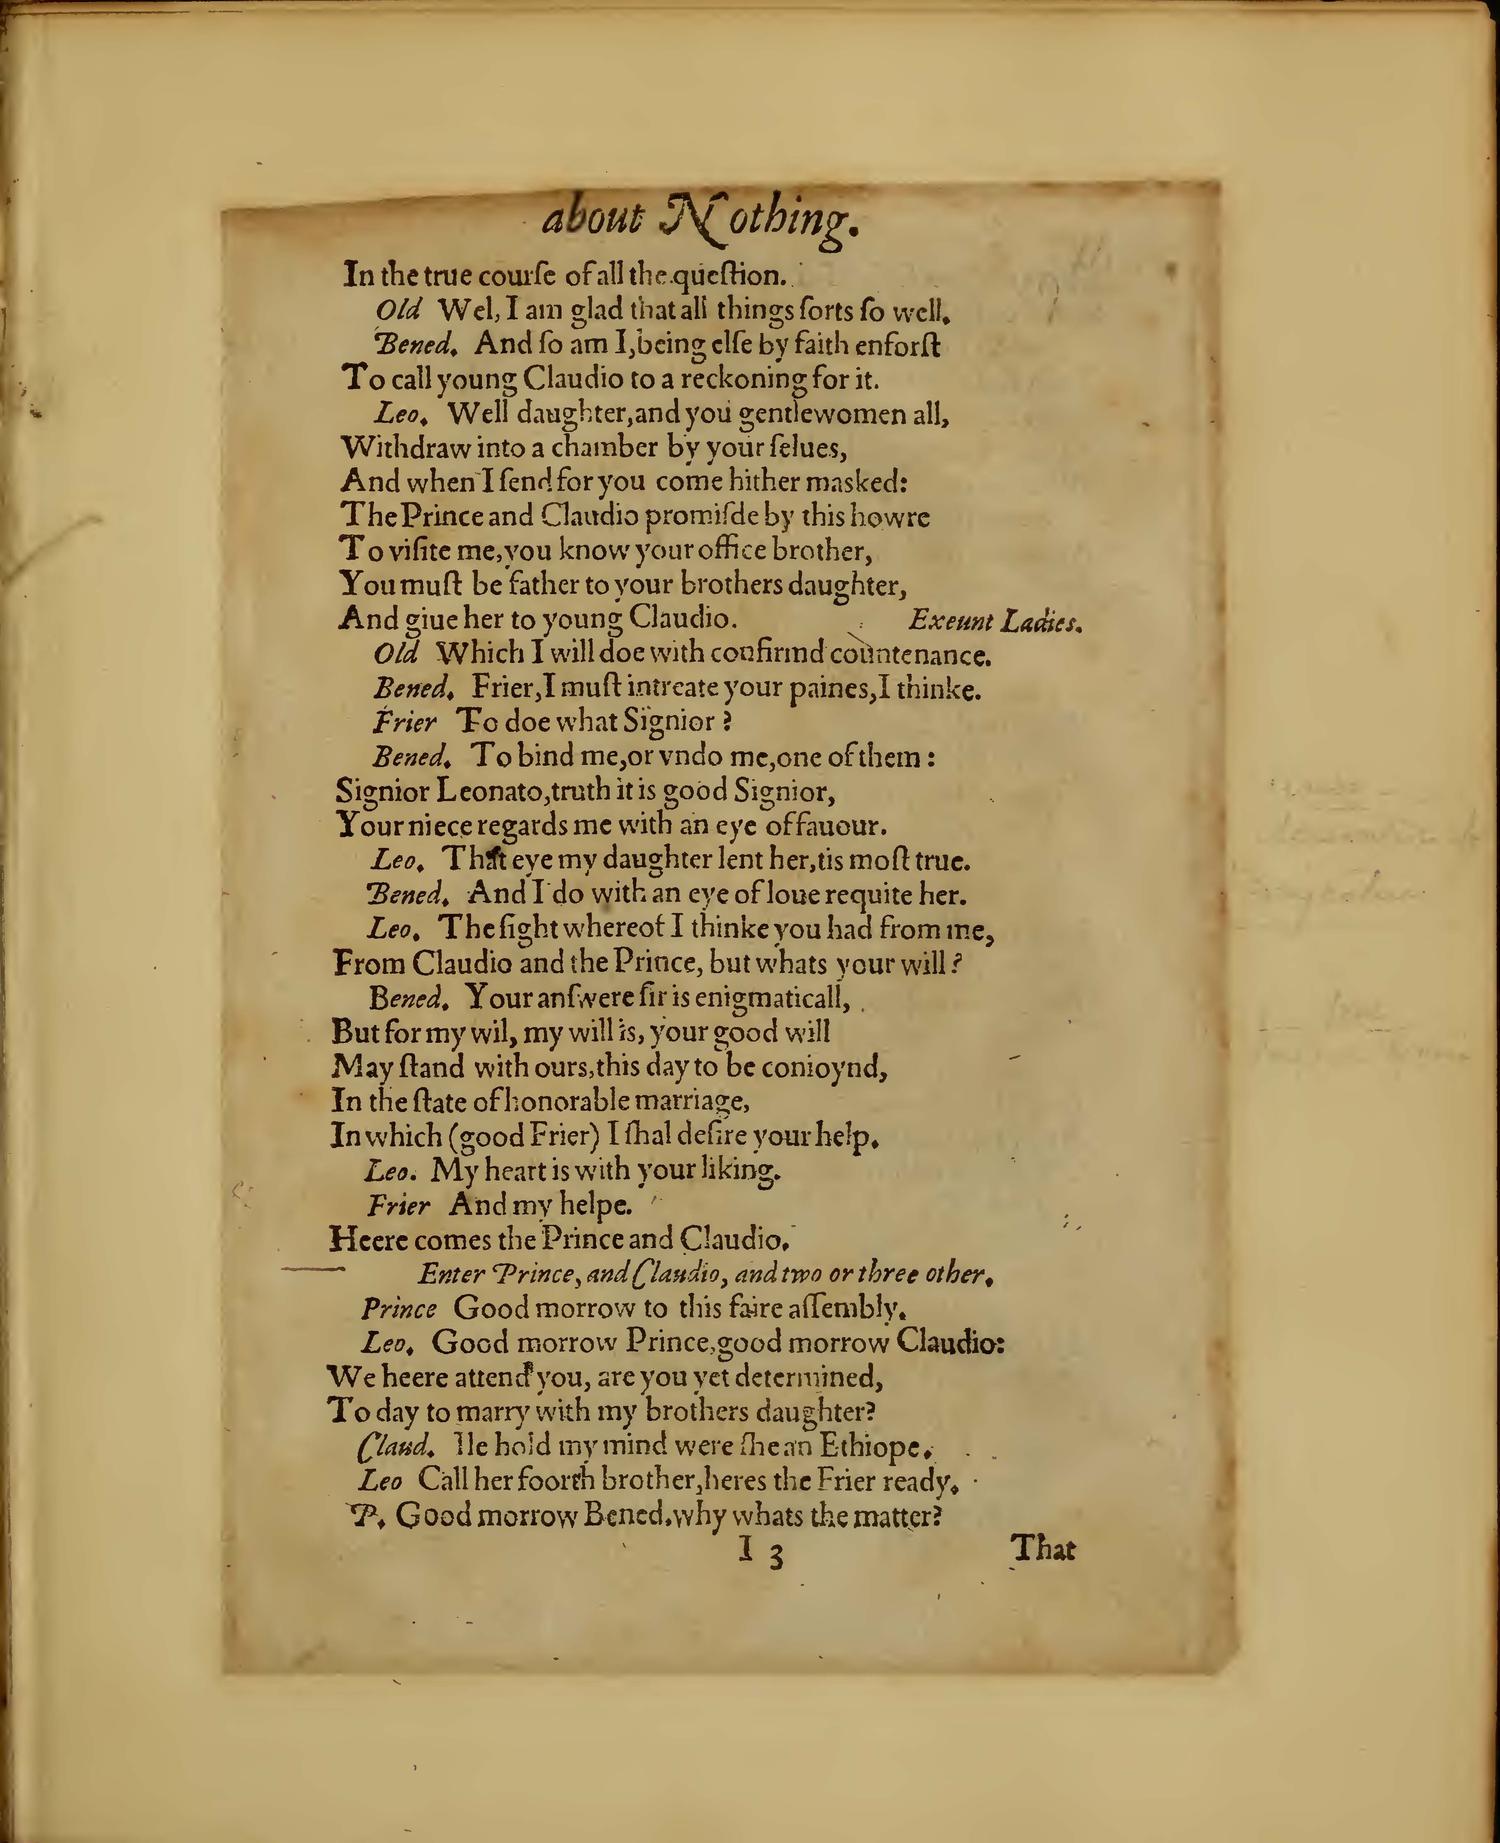 about Nothing.
In the true courſe of all the queſtion.
Old Wel, I am glad that all things ſorts ſo well.
Bened. And ſo am I, being elſe by faith enforſt
To call young Claudio to a reckoning for it.
Leo. Well daughter, and you gentlewomen all,
Withdraw into a chamber by your ſelues,
And when I ſend for you come hither masked:
The Prince and Claudio promiſde by this howre
To viſite me, you know your office brother,
You muſt be father to your brothers daughter,
And giue her to young Claudio. Exeunt Ladies.
Old Which I will doe with confirmd countenance.
Bened. Frier, I muſt intreate your paines, I thinke.
Frier To doe what Signior?
Bened. To bind me, or vndo me, one of them:
Signior Leonato, truth it is good Signior,
Your niece regards me with an eye of fauour.
Leo. That eye my daughter lent her, tis moſt true.
Bened. And I do with an eye of loue requite her.
Leo. The ſight whereof I thinke you had from me,
From Claudio and the Prince, but whats your will?
Bened. Your anſwere ſir is enigmaticall,
But for my wil, my will is, your good will
May ſtand with ours, this day to be conioynd,
In the ſtate of honorable marriage,
In which (good Frier) I ſhal deſire your help.
Leo. My heart is with your liking.
Frier And my helpe.
Heere comes the Prince and Claudio.
Enter Prince, and Claudio, and two or three other.
Prince Good morrow to this faire aſſembly.
Leo. Good morrow Prince, good morrow Claudio:
We heere attend you, are you yet determined,
To day to marry with my brothers daughter?
Claud. Ile hold my mind were ſhe an Ethiope.
Leo Call her foorth brother, heres the Frier ready.
P. Good morrow Bened. why whats the matter?
I 3 That